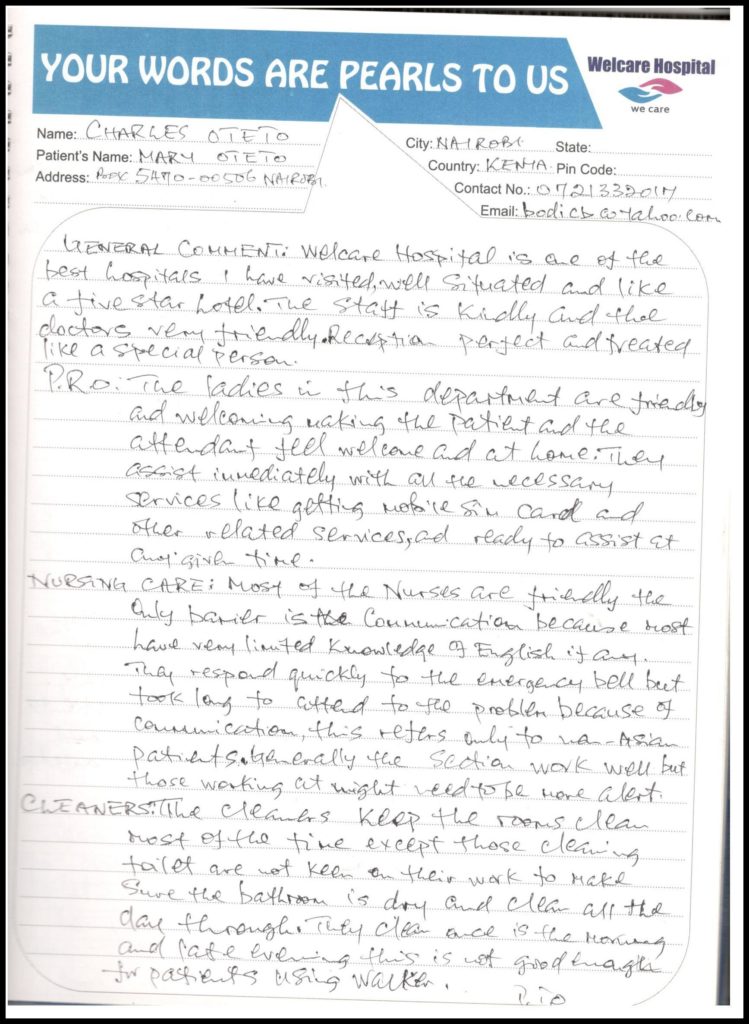 YOUR WORDS ARE PEARLS TO US
Welcare Hospital
we care
Name: CHARLES OTETO
Patient's Name: MARY OTETO
Address: BOX 5470-00506 NAIROBI.
City: NAIROBI. State:
Country: KENYA. Pin Code:
Contact No.: 0721332017
Email: bodicb@yahoo.com
GENERAL COMMENT: Welcare Hospital is one of the
best hospitals I have visited, well situated and like
a five star hotel. The staff is kindly and the
doctors very friendly. Reception perfect and treated
like a special person.
P.R.O: The ladies in this department are friendly
and welcoming making the patient and the
attendant feel welcome and at home. They
assist immediately with all the necessary
services like getting mobile sim card and
other related services, ad ready to assist at
any given time.
NURSING CARE: Most of the Nurses are friendly the
only barier is the communication because most
have very limited knowledge of English if any.
They respond quickly to the emergency bell but
took long to attend to the problem because of
communication, this refers only to non-Asian
patients. Generally the section work well but
those working at night need to be more alert.
CLEANERS: The cleaners keep the rooms clean
most of the time except those cleaning
toilet are not keen on their work to make
sure the bathroom is dry and clean all the
day through. They clean once is the morning
and late evening this is not good enough
for patients using walker.
P.TO